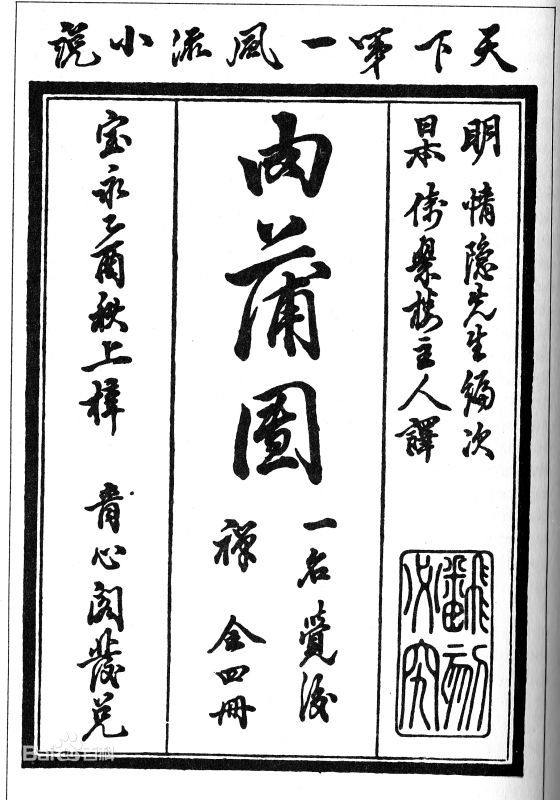 天下第一風流小説
明 情隐先生編次
日本 倚翠楼主人譯
翻刻必究
肉蒲團
一名覺後
禪 全四冊
宝永乙酉秋上梓 青心閣發兌
Baidu百科